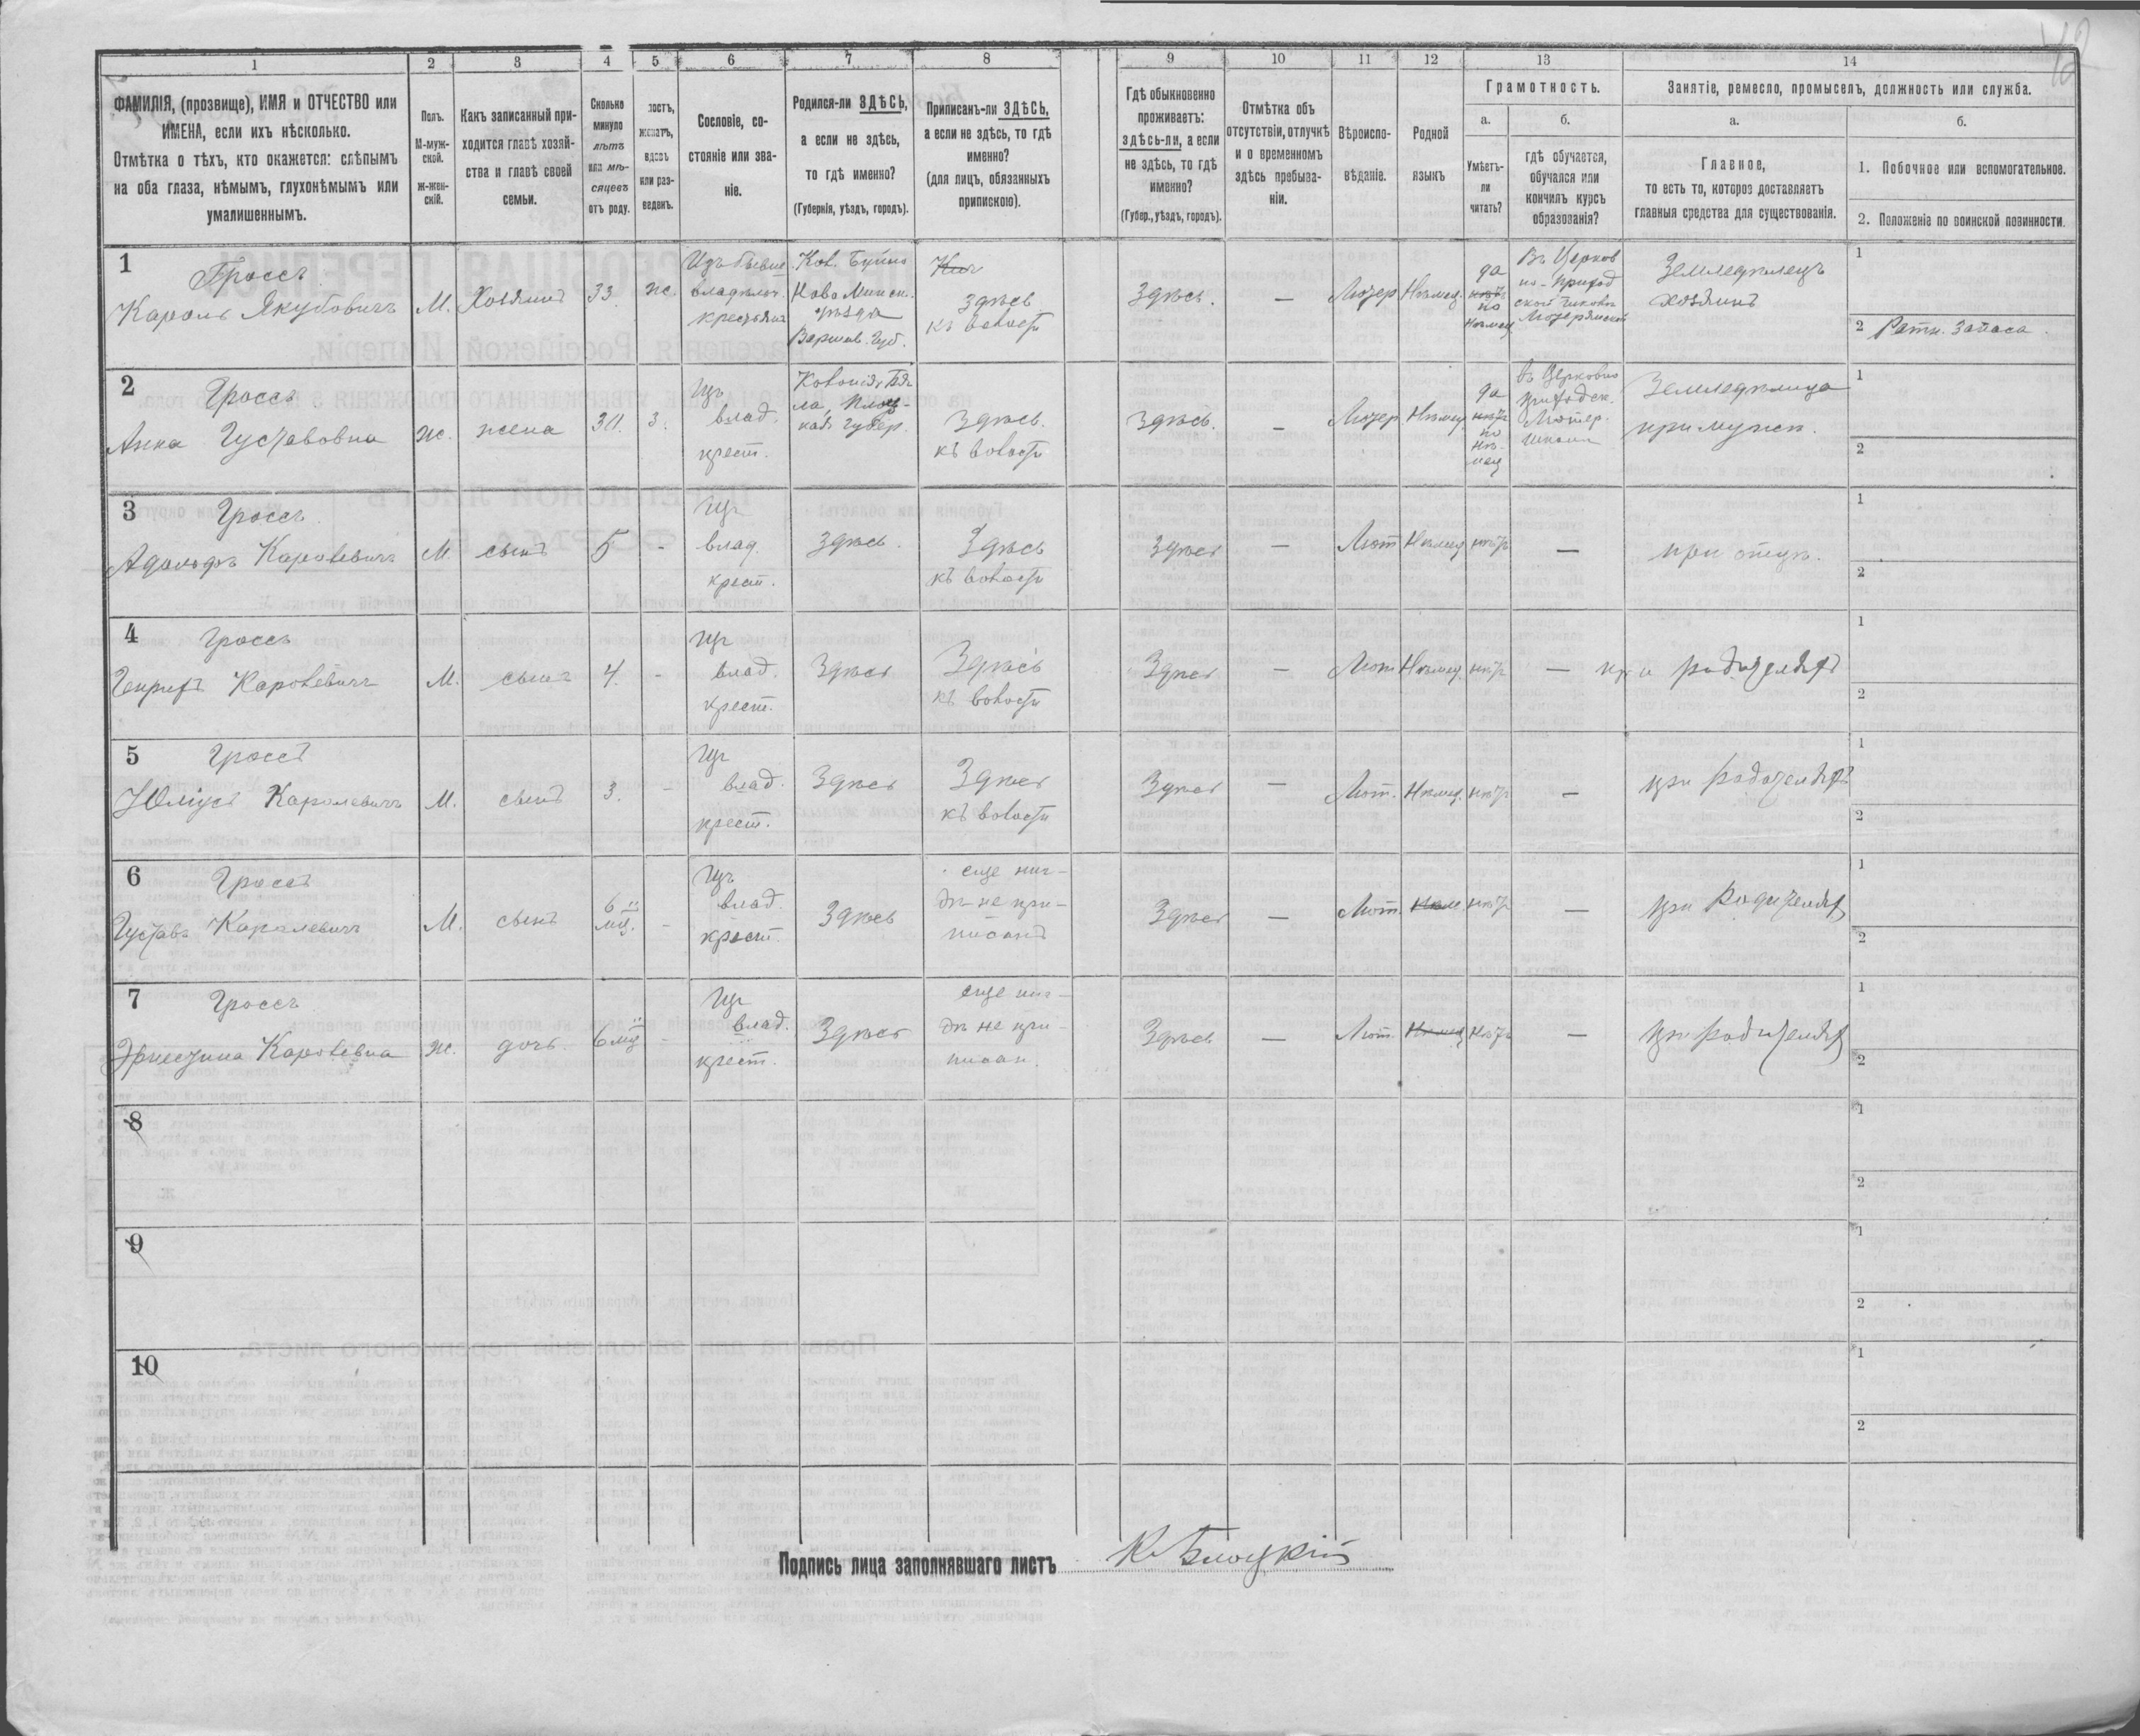 1 2 3 4 5 6 7 8 9 10 11 12 13 14
ФАМИЛІЯ, (прозвище), ИМЯ и ОТЧЕСТВО или
ИМЕНА, если ихъ нѣсколько.
Отмѣтка о тѣхъ, кто окажется: слѣпымъ
на оба глаза, нѣмымъ, глухонѣмымъ или
умалишеннымъ.
Полъ.
М-муж-
ской.
ж-жен-
скій.
Какъ записанный при-
ходится главѣ хозяй-
ства и главѣ своей
семьи.
Сколько
минуло
лѣтъ
или мѣ-
сяцевъ
отъ роду.
лостъ,
женатъ,
вдовъ
или раз-
веденъ.
Сословіе, со-
стояніе или зва-
ніе.
Родился-ли ЗДѢСЬ,
а если не здѣсь,
то гдѣ именно?
(Губернія, уѣздъ, городъ).
Приписанъ-ли ЗДѢСЬ,
а если не здѣсь, то гдѣ
именно?
(для лицъ, обязанныхъ
припискою).
Гдѣ обыкновенно
проживаетъ:
здѣсь-ли, а если
не здѣсь, то гдѣ
именно?
(Губер., уѣздъ, городъ).
Отмѣтка объ
отсутствіи, отлучкѣ
и о временномъ
здѣсь пребыва-
ніи.
Вѣроиспо-
вѣданіе.
Родной
языкъ
Грамотность.
а.
Умѣетъ-
ли
читать?
б.
гдѣ обучается,
обучался или
кончилъ курсъ
образованія?
Занятіе, ремесло, промыселъ, должность или служба.
а.
Главное,
то есть то, которое доставляетъ
главныя средства для существованія.
б.
1. Побочное или вспомогательное.
2. Положеніе по воинской повинности.
1
Гроссъ
Кароль Якубовичъ
М. Хозяинъ 33 ж.
Изъ бывше
владѣльч.
крестьянъ
Кол. Буйно
Ново Минск.
уѣзда
Варшав. Губ.
здѣсь
къ волости
Здѣсь. — Лютер Нѣмец.
да
нѣтъ
по
Нѣмец
Въ Церков
но-приход
ской
Земледѣлецъ
хозяинъ
1
2 Ратн. запаса.
2
Гроссъ
Анна Густавовна
ж. жена 30. з.
Изъ
влад.
крест.
Колонія Бя
ла, Плоц-
кая губер.
Здѣсь.
къ волости
Здѣсь. — Лютер Нѣмец
да
нѣтъ
по
Нѣ-
мец
въ Церковно
приходск.
Лютер.
школѣ
Земледѣлица
при мужѣ.
1
2
3
Гроссъ
Адольфъ Каролевичъ
М. сынъ 5 -
Изъ
влад.
крест.
Здѣсь.
Здѣсь
къ волости
Здѣсь — Лют Нѣмец нѣтъ — при отцѣ.
1
2
4
Гроссъ
Генрихъ Каролевичъ
М. сынъ 4. -
Изъ
влад.
крест.
Здѣсь
Здѣсь
къ волости
Здѣсь — Лют Нѣмец. нѣтъ — при родителяхъ
1
2
5
Гроссъ
Юліусъ Каролевичъ
М. сынъ 3. -
Изъ
влад.
крест.
Здѣсь
Здѣсь
къ волости
Здѣсь — Лют. Нѣмец. нѣтъ — при родителяхъ
1
2
6
Гроссъ
Густавъ Каролевичъ
М. сынъ
6
мц. -
Изъ
влад.
крест.
Здѣсь
еще ниг-
дѣ не при-
писанъ
Здѣсь — Лют. Нѣм нѣтъ — при родителях
1
2
7
Гроссъ
Эрнестина Каролевна
ж. дочь. 6 мц -
Изъ
влад.
крест.
Здѣсь
еще ниг-
дѣ не при-
писан.
Здѣсь — Лют. Нѣмец нѣтъ — при родителях
1
2
8
1
2
9
1
2
10
1
2
Подпись лица заполнявшаго листъ